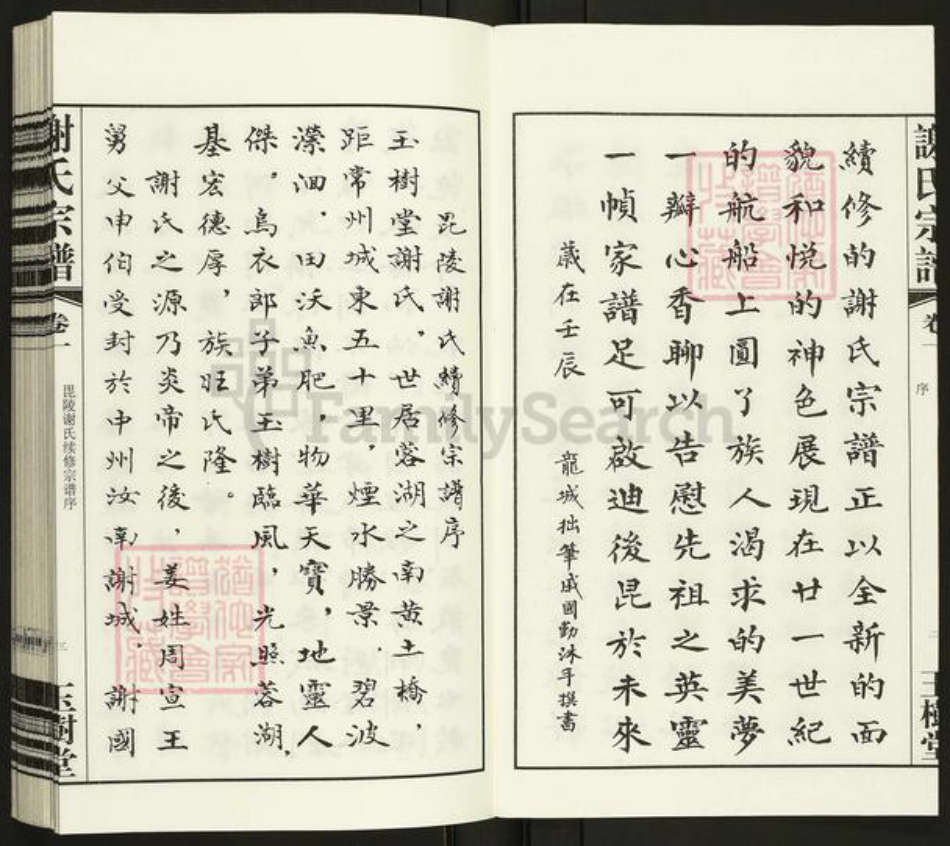 謝氏宗譜
卷一
序
二
玉樹堂
續修的謝氏宗譜正以全新的面
貌和悅的神色展現在廿一世紀
的航船上圓了族人渴求的美夢
一瓣心香聊以告慰先祖之英靈
一幀家譜足可啟迪後昆於未來
歲在壬辰
龍城拙筆戚國勤沐手撰書
毘陵謝氏續修宗譜序
玉樹堂謝氏，世居蓉湖之南黄土橋，
距常州城東五十里，煙水勝景．碧波
瀠洄．田沃魚肥，物華天寶，地靈人
傑。烏衣郎子弟玉樹臨風，光照蓉湖．
基宏德厚，族旺氏隆。
謝氏之源乃炎帝之後，姜姓周宣王
舅父申伯受封於申州汝南謝城．謝國
謝氏宗譜
卷一
毘陵谢氏续修宗谱序
三
玉樹堂
FamilySearch